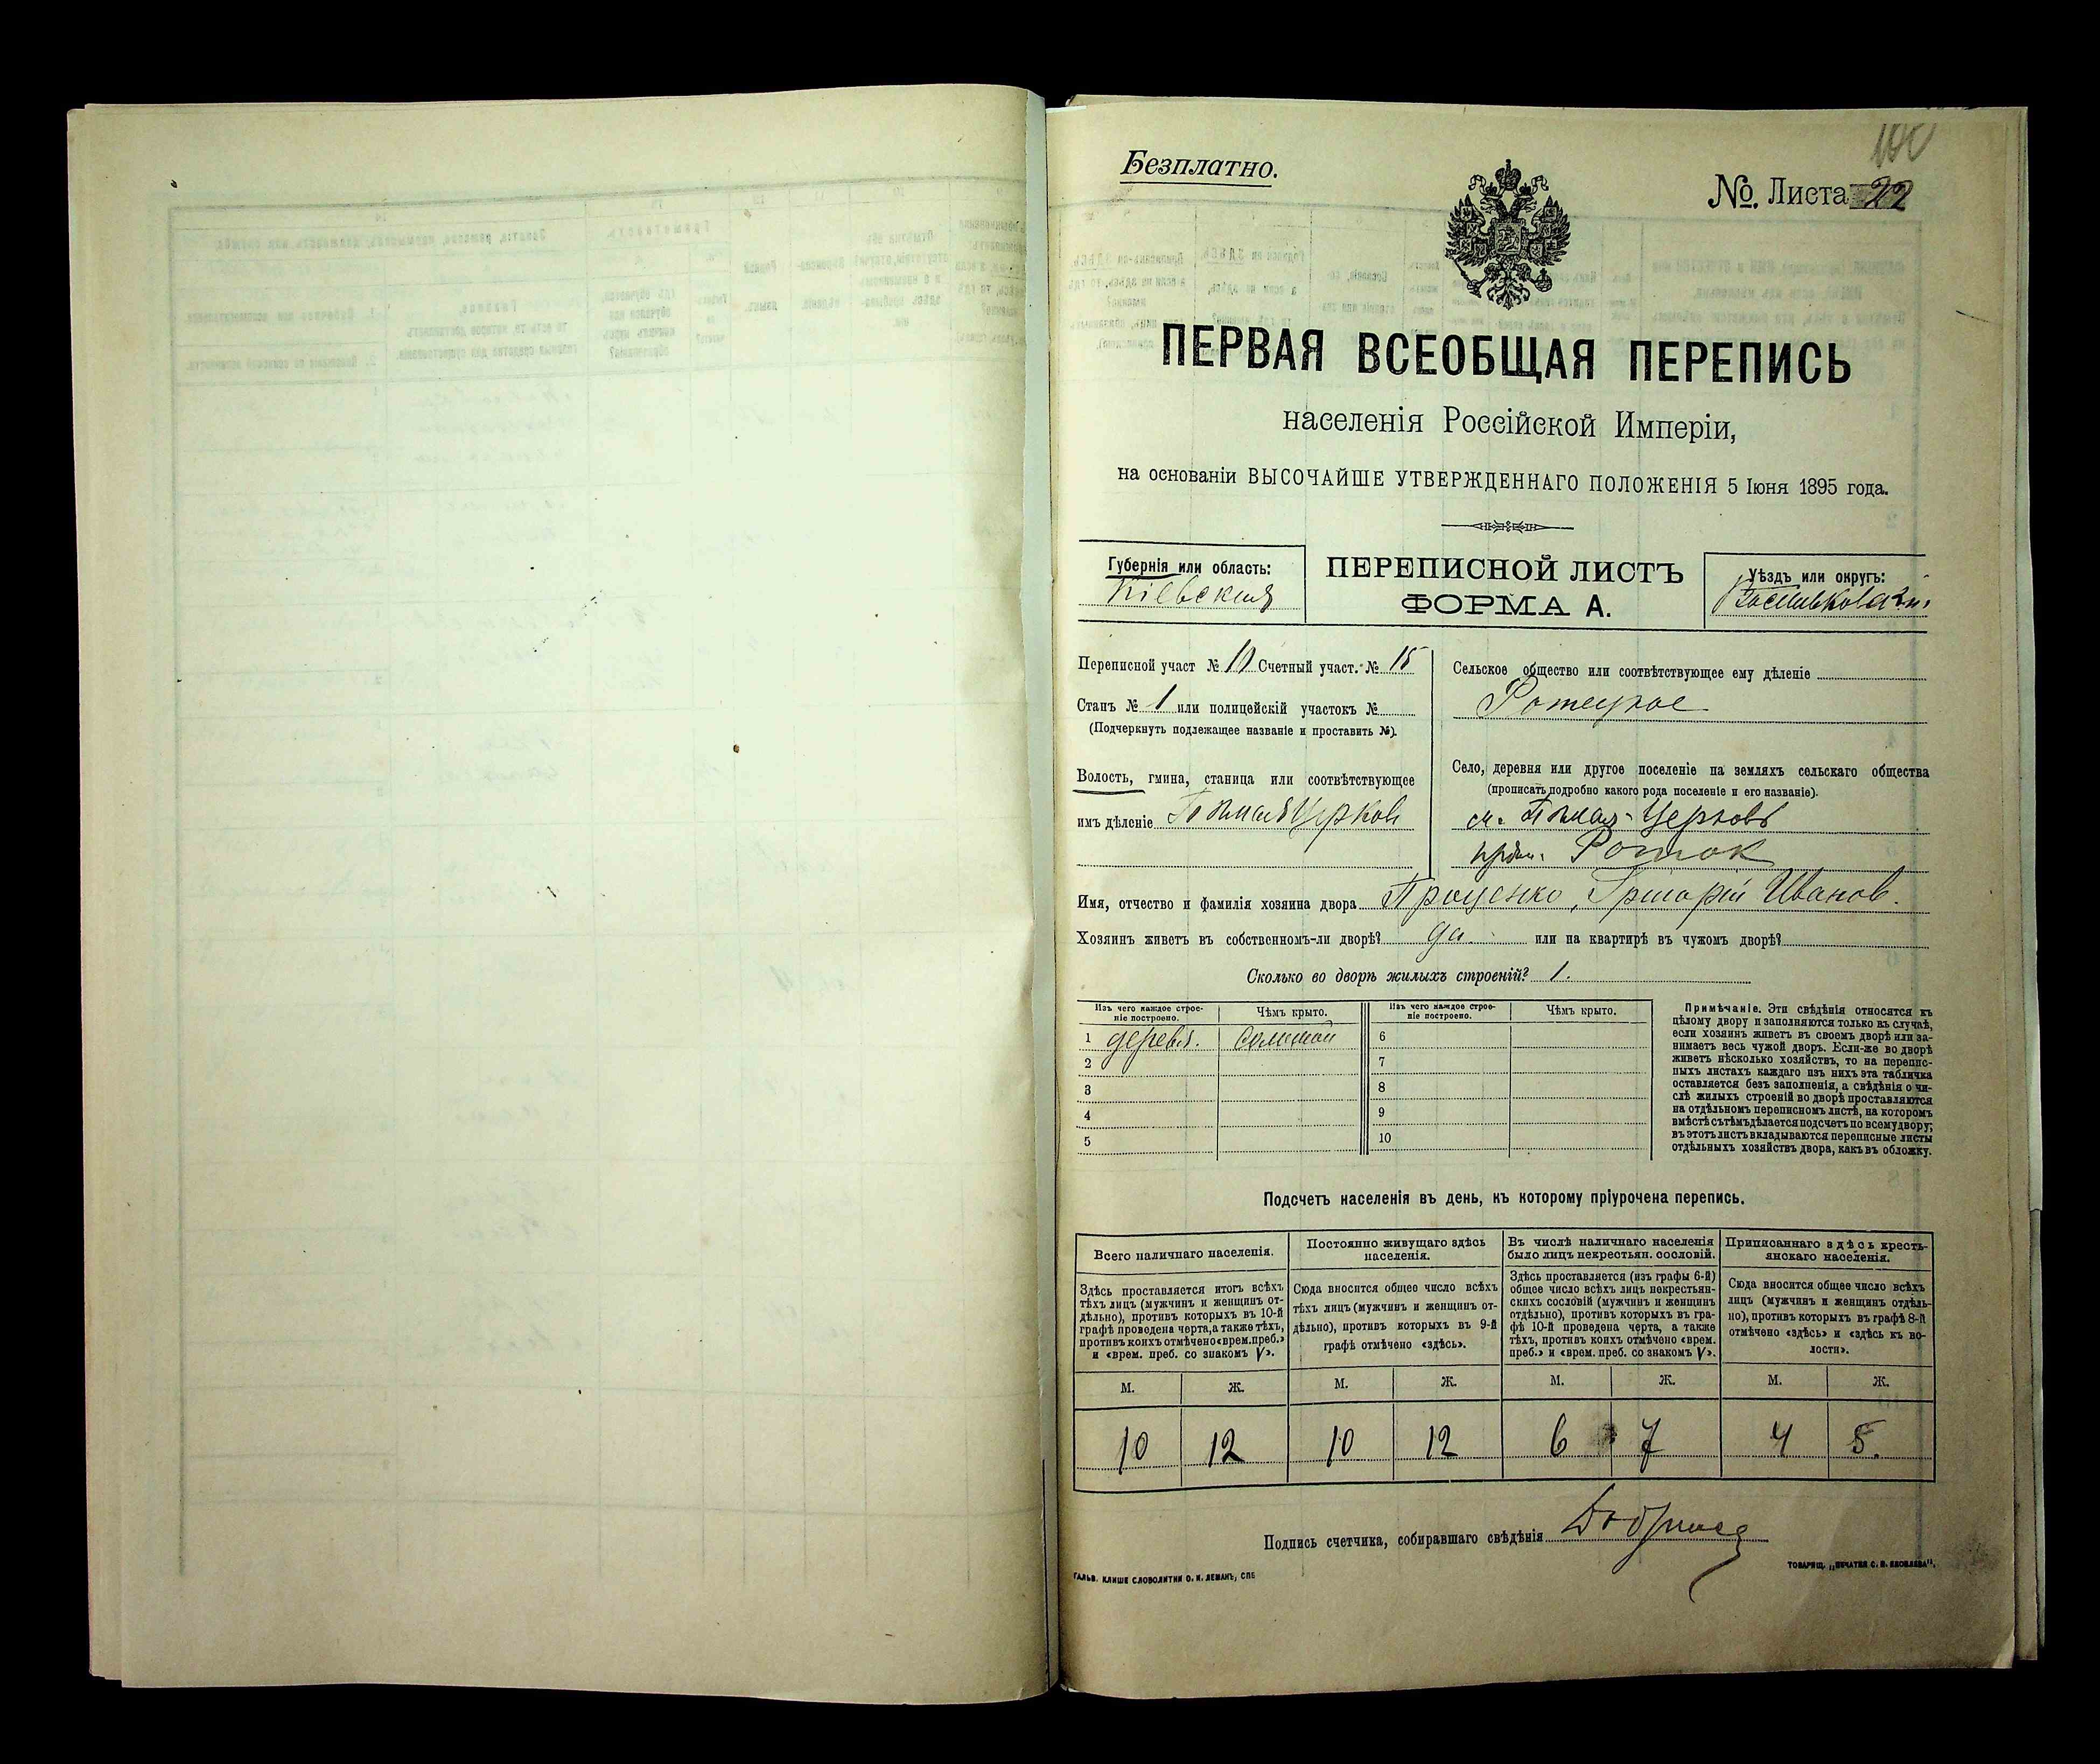 100
Безплатно.
№. Листа 22
ПЕРВАЯ ВСЕОБЩАЯ ПЕРЕПИСЬ
населенія Россійской Имперіи,
на основаніи ВЫСОЧАЙШЕ УТВЕРЖДЕННАГО ПОЛОЖЕНІЯ 5 Іюня 1895 года.
Губернія или область:
Кіевская
ПЕРЕПИСНОЙ ЛИСТЪ
ФОРМА А.
Уѣздъ или округъ:
Переписной участ № 10 Счетный участ. № 15
Станъ № 1 или полицейскій участокъ №
(Подчеркнуть подлежащее названіе и проставить №).
Волость, гмина, станица или соотвѣтствующее
имъ дѣленіе Бѣлая Церковь
Сельское общество или соотвѣтствующее ему дѣленіе
Ротецкое
Село, деревня или другое поселеніе на земляхъ сельскаго общества
(прописать подробно какого рода поселеніе и его названіе).
м. Бѣлая-Церковь
Роток
Имя, отчество и фамилія хозяина двора Проценко, Григорій Иванов.
Хозяинъ живетъ въ собственномъ-ли дворѣ? да или на квартирѣ въ чужомъ дворѣ?
Сколько во дворѣ жилыхъ строеній? 1.
Изъ чего каждое строе-
ніе построено.
Чѣмъ крыто.
Изъ чего каждое строе-
ніе построено.
Чѣмъ крыто.
1 деревя. соломой 6
2 7
3 8
4 9
5 10
Примѣчаніе. Эти свѣдѣнія относятся къ
цѣлому двору и заполняются только въ случаѣ,
если хозяинъ живетъ въ своемъ дворѣ или за-
нимаетъ весь чужой дворъ. Если-же во дворѣ
живетъ нѣсколько хозяйствъ, то на перепис-
ныхъ листахъ каждаго изъ нихъ эта табличка
оставляется безъ заполненія, а свѣдѣнія о чи-
слѣ жилыхъ строеній во дворѣ проставляются
на отдѣльномъ переписномъ листѣ, на которомъ
вмѣстѣ съ тѣмъ дѣлается подсчетъ по всему двору;
въ этотъ листъ вкладываются переписные листы
отдѣльныхъ хозяйствъ двора, какъ въ обложку.
Подсчетъ населенія въ день, къ которому пріурочена перепись.
Всего наличнаго населенія.
Постоянно живущаго здѣсь
населенія.
Въ числѣ наличнаго населенія
было лицъ некрестьян. сословій.
Приписаннаго здѣсь кресть-
янскаго населенія.
Здѣсь проставляется итогъ всѣхъ
тѣхъ лицъ (мужчинъ и женщинъ от-
дѣльно), противъ которыхъ въ 10-й
графѣ проведена черта, а также тѣхъ,
противъ коихъ отмѣчено «врем. преб.»
и «врем. преб. со знакомъ V».
Сюда вносится общее число всѣхъ
тѣхъ лицъ (мужчинъ и женщинъ от-
дѣльно), противъ которыхъ въ 9-й
графѣ отмѣчено «здѣсь».
Здѣсь проставляется (изъ графы 6-й)
общее число всѣхъ лицъ некрестьян-
скихъ сословій (мужчинъ и женщинъ
отдѣльно), противъ которыхъ въ гра-
фѣ 10-й проведена черта, а также
тѣхъ, противъ коихъ отмѣчено «врем.
преб.» и «врем. преб. со знакомъ V».
Сюда вносится общее число всѣхъ
лицъ (мужчинъ и женщинъ отдѣль-
но), противъ которыхъ въ графѣ 8-й
отмѣчено «здѣсь» и «здѣсь къ во-
лости».
М. Ж. М. Ж. М. Ж. М. Ж.
10 12 10 12 6 7 4 5.
Подпись счетчика, собиравшаго свѣдѣнія
ГАЛЬВ. КЛИШЕ СЛОВОЛИТНИ О. И. ЛЕМАНЪ, СПБ
ТОВАРИЩ. „ПЕЧАТНЯ С. П. ЯКОВЛЕВА".